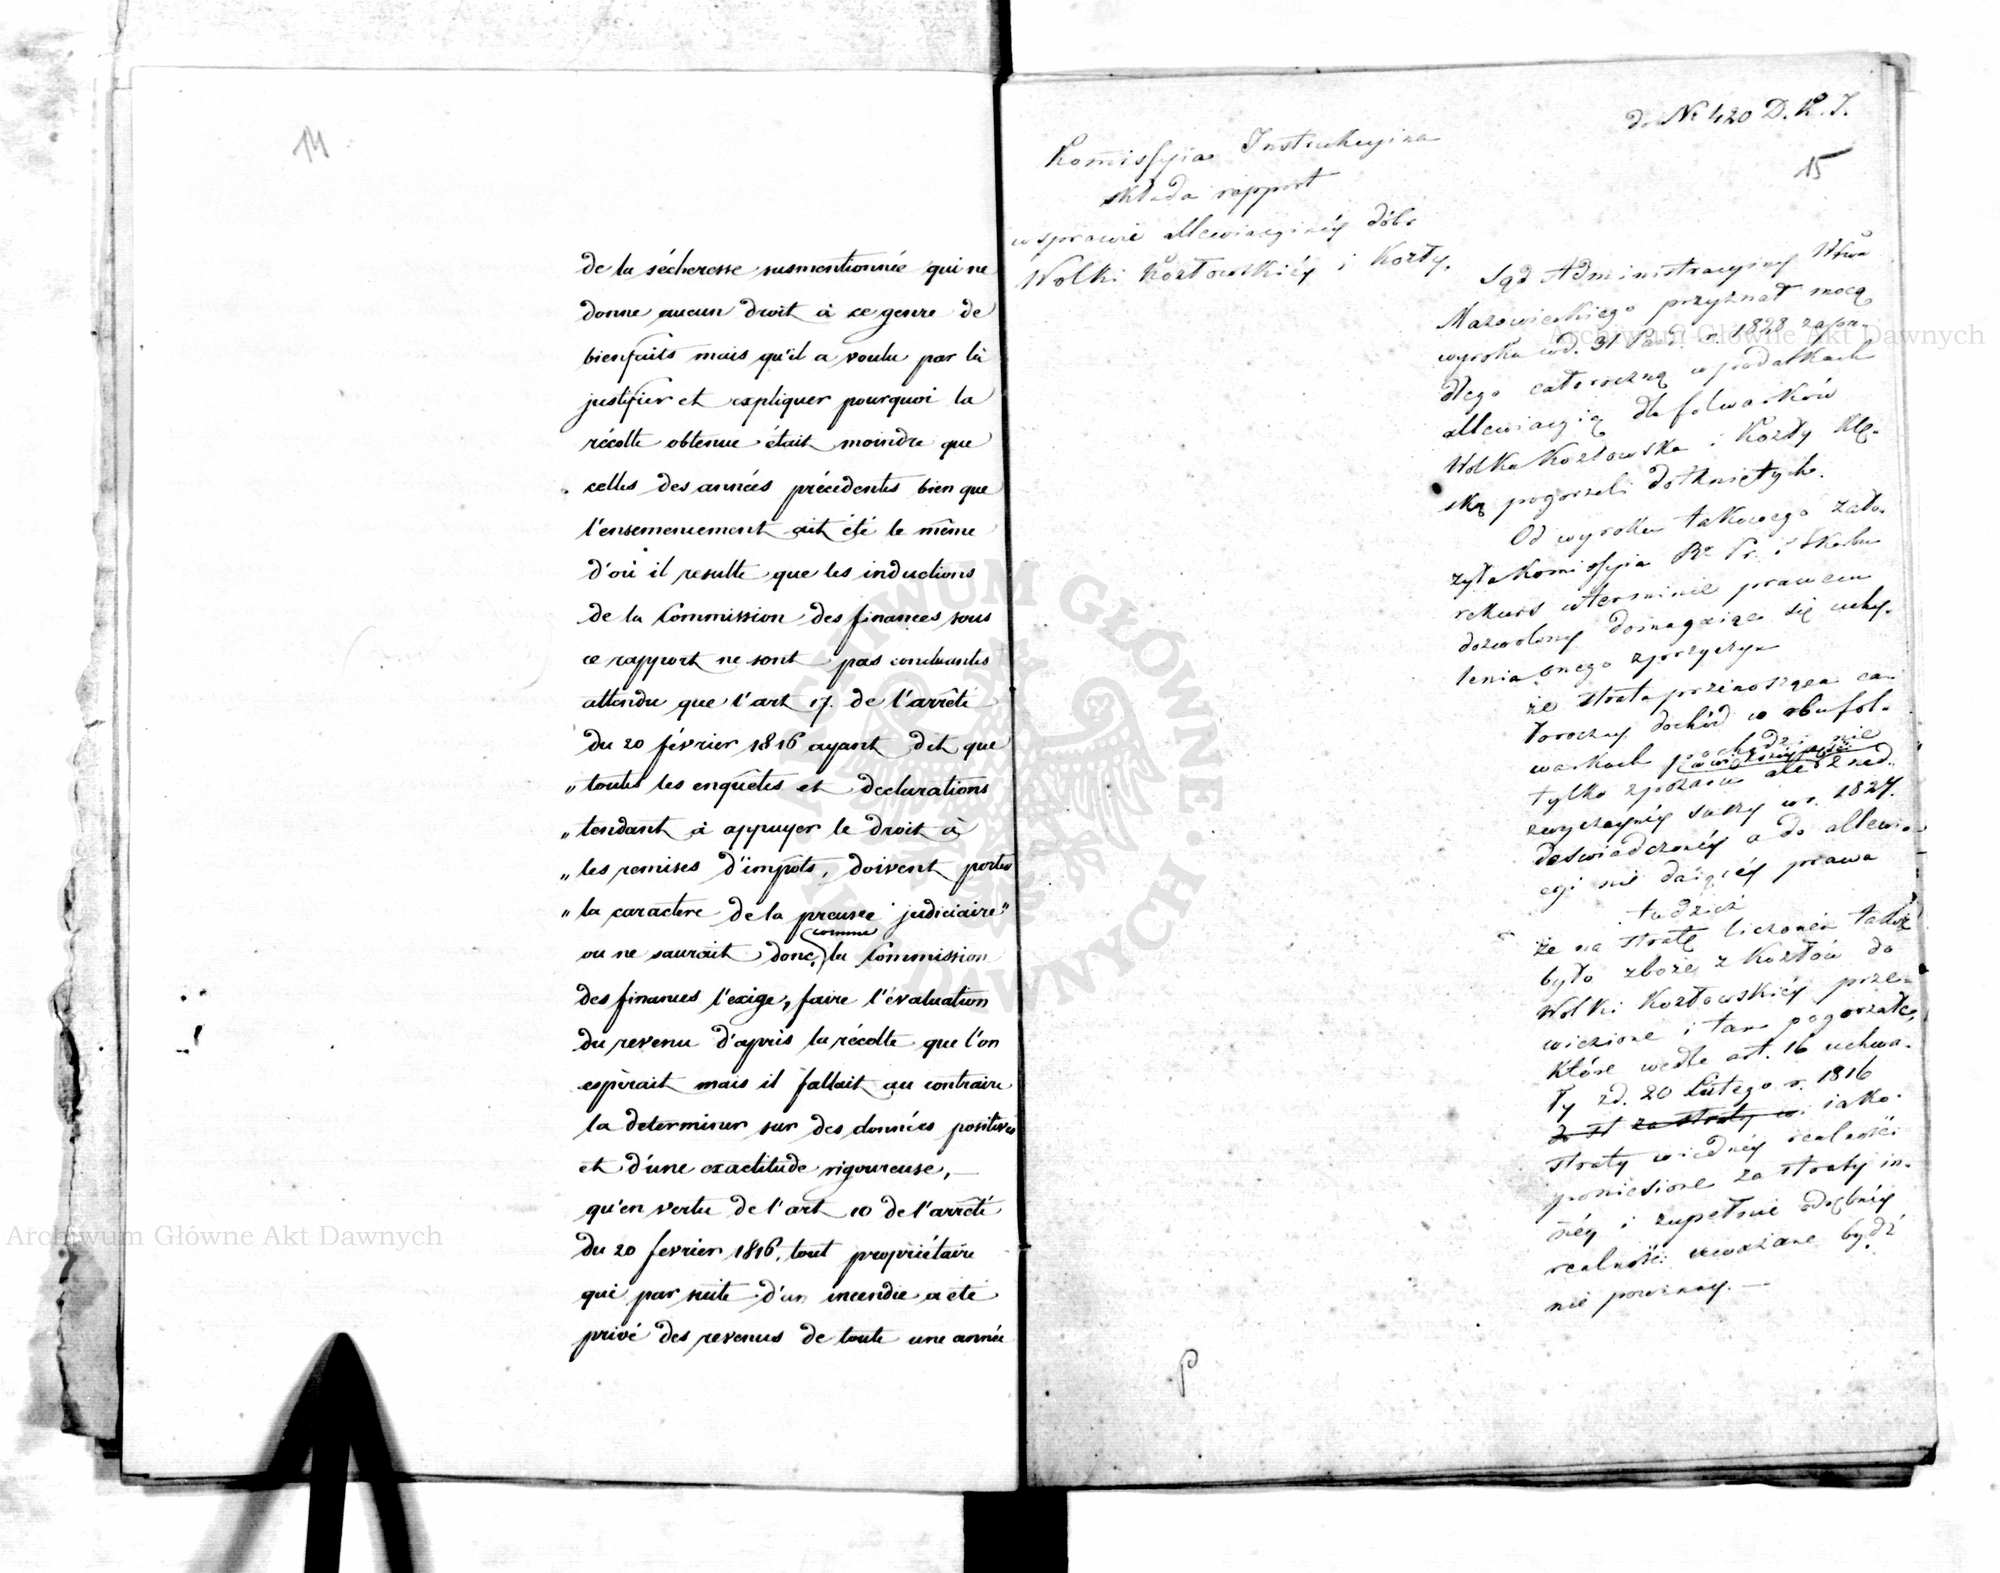 14
de la sécheresse susmentionnée qui ne
donne aucun droit à ce genre de
bienfaits mais qu'il a voulu par là
justifier et expliquer pourquoi la
récolte obtenue était moindre que
celles des années précédentes bien que
l'ensemencement ait été le même
d'où il resulte que les inductions
de la Commission des finances sous
ce rapport ne sont pas concluantes
attendu que l'art 17. de l'arrêté
du 20 février 1816 ayant dit que
„ toutes les enquêtes et declarations
„ tendant à appuyer le droit à
„ les remises d'impôts, doivent porter
„ la caractere de la preuve judiciaire"
comme
on ne saurait donc, la Commission
des finances l'exige, faire l'évaluation
du revenu d'après la récolte que l'on
espèrait mais il fallait au contraire
la determiner sur des données positives
et d'une exactitude rigoureuse, —
qu'en vertu de l'art 10 de l'arrêté
du 20 fevrier 1816, tout propriétaire
qui par suite d'un incendie a été
privé des revenus de toute une année
do No 420 D.K.I.
15
Komissyia Instrukcyina
składa rapport
w sprawie allewiacyinéy dóbr
Wolki Kozłowskiéy i Kozły.
Sąd Administracyiny Wwa
Mazowieckiego przyznał mocą
wyroku w d. 31 1828 zapa-
dłego całoroczną w podatkach
allewiacyią dla folwarków
Wolka Kozłowska i Kozły klę-
ską pogorzeli dotkniętych.
Od wyroku takowego zało-
żyła Komissyia Rz. Pr. i Skarbu
rekurs w terminie prawem
dozwolony domagaiąc się uchy-
lenia onego z przyczyn
że strata przenosząca ca-
łoroczny dochód w obu fol-
warkach pochodzi nie
tylko z pożaru ale z nad-
zwyczaynéy suszy w r. 1827.
doświadczonéy a do allewia-
cyi nie daiącéy prawa
tudzież
że na stratę liczoném także
było zboże z Kozłów do
Wolki Kozłowskiéy prze-
wiezione i tam pogorzałe,
które wedle art. 16 uchwa-
ły z d. 20 Lutego r. 1816
iako
straty w iednéy realności
poniesione za straty in-
néy i zupełnie odrębnéy
realności uważane bydź
nie powinny. —
P
Archiwum Główne Akt Dawnych
Archiwum Główne Akt Dawnych
ARCHIWUM GŁÓWNE AKT DAWNYCH